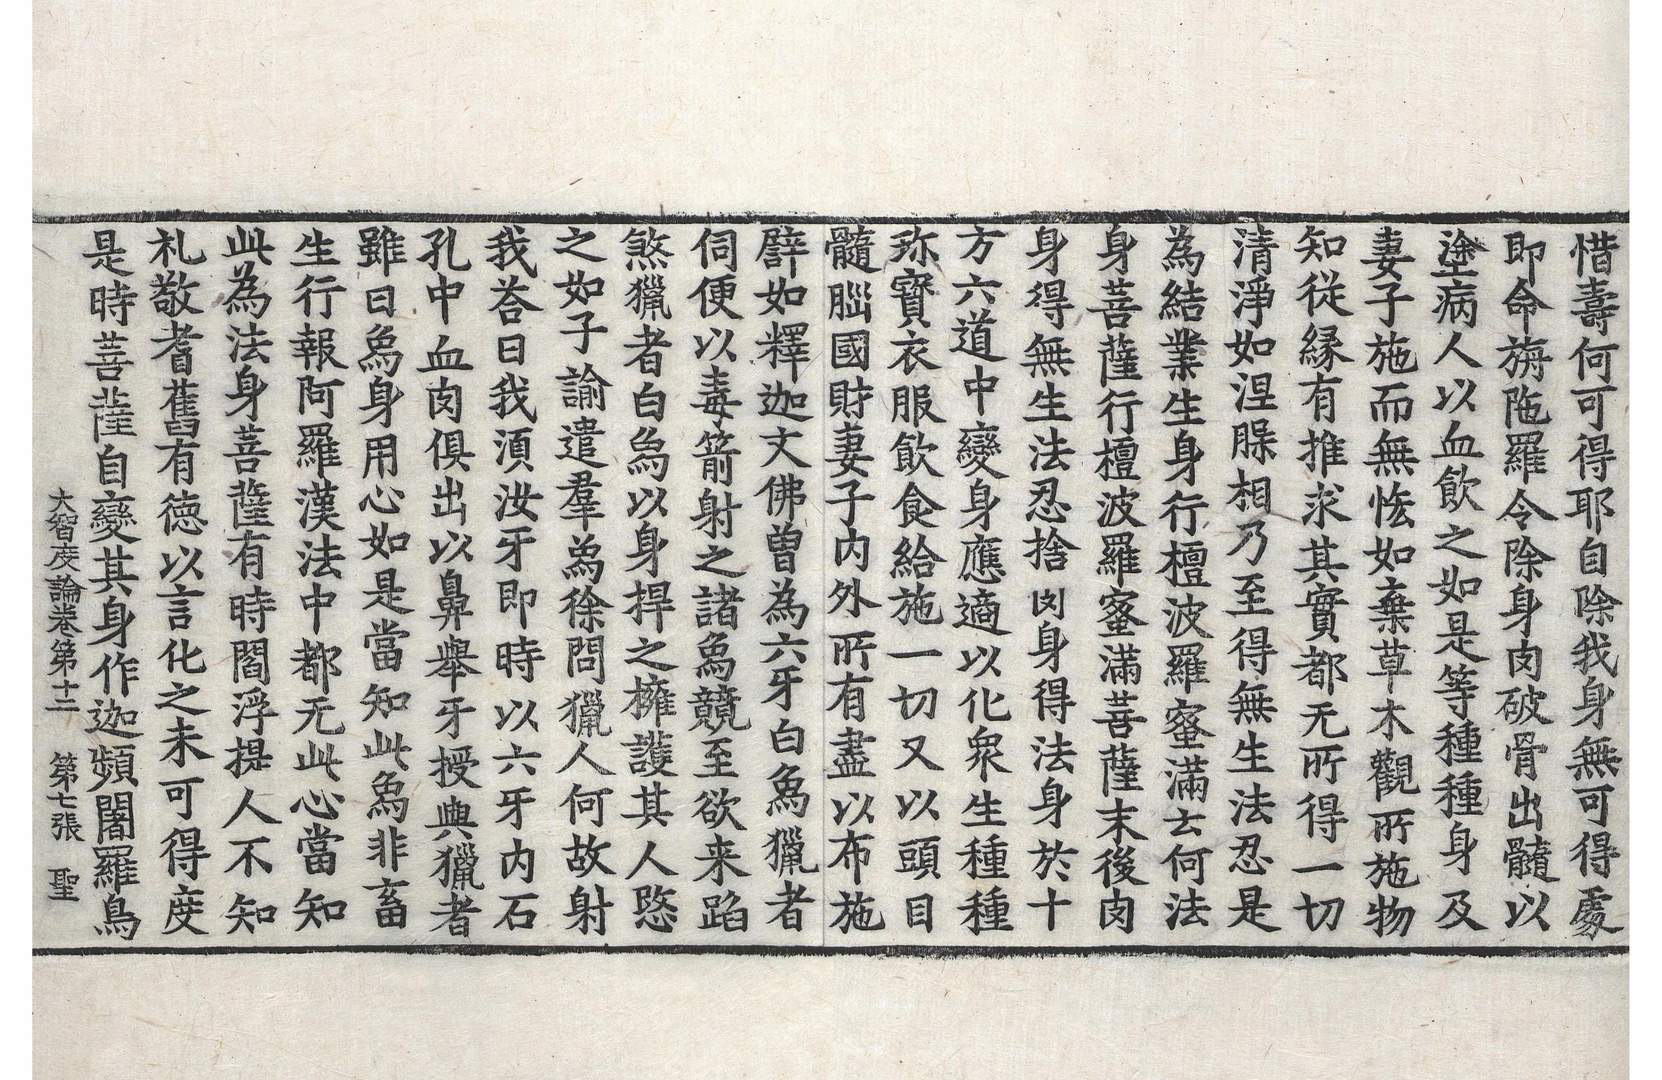 惜壽何可得耶自除我身無可得處
即命旃陁羅令除身肉破骨出髓以
塗病人以血飲之如是等種種身及
妻子施而無悋如棄草木觀所施物
知從緣有推求其實都无所得一切
清淨如涅脲相乃至得無生法忍是
為結業生身行檀波羅蜜滿云何法
身菩薩行檀波羅蜜滿菩薩末後肉
身得無生法忍捨肉身得法身於十
方六道中變身應適以化衆生種種
珎寶衣服飲食給施一切又以頭目
髓腦國財妻子内外所有盡以布施
譬如釋迦文佛曽為六牙白象獵者
伺便以毒箭射之諸象競至欲来蹈
煞獵者白象以身捍之擁護其人愍
之如子諭遣羣象徐問獵人何故射
我荅曰我湏汝牙即時以六牙内石
孔中血肉俱出以鼻舉牙授與獵者
雖曰象身用心如是當知此象非畜
生行報阿羅漢法中都无此心當知
此為法身菩薩有時閻浮提人不知
礼敬耆舊有德以言化之未可得度
是時菩薩自變其身作迦頻闍羅鳥
大智度論卷第十二 第七張 聖